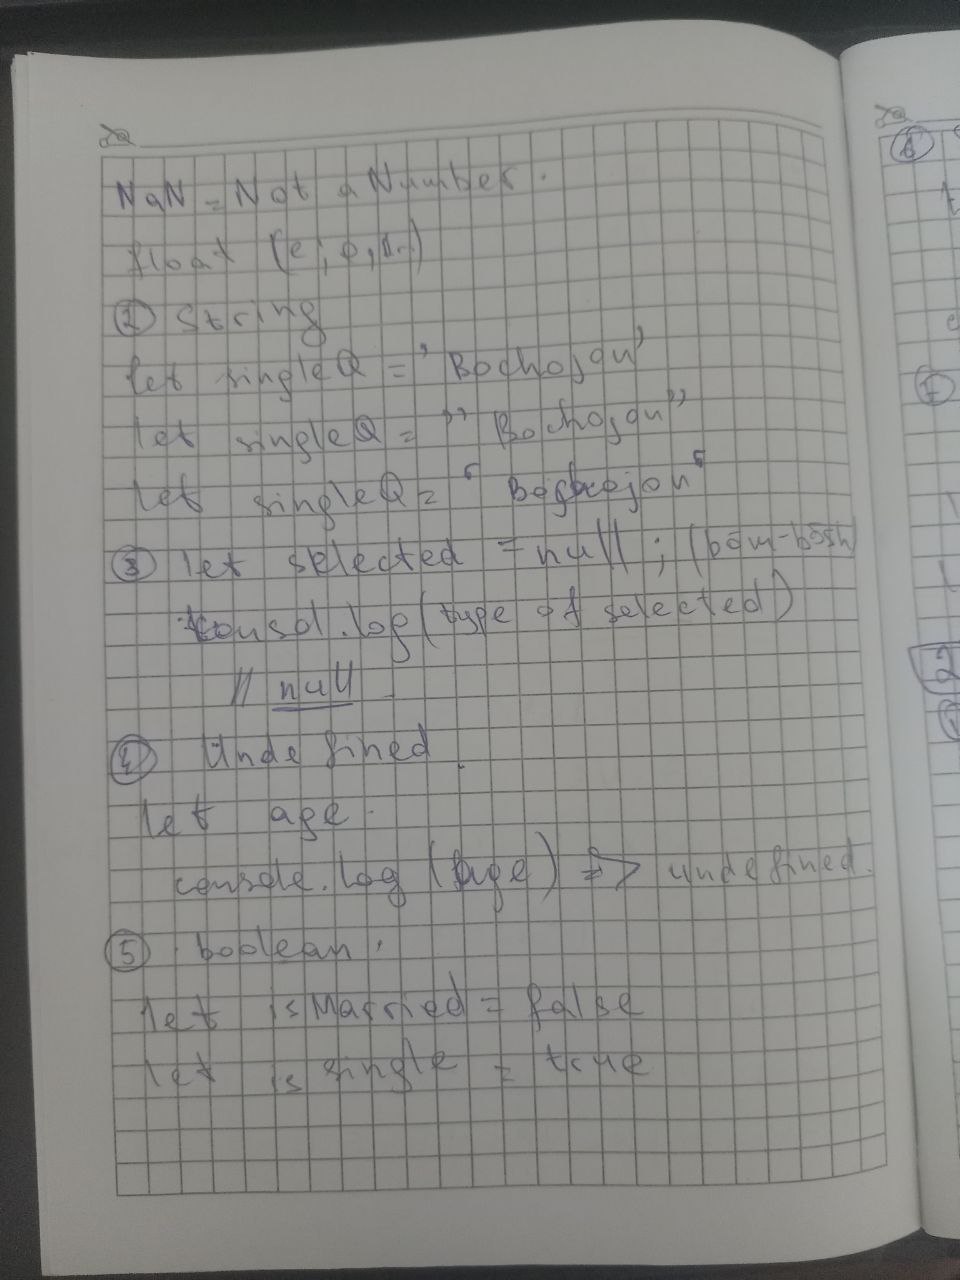 NaN = Not a Number.
float (e; 0,1.)
② String
let singleQ = 'Bochojqu'
let singleQ = " Bochojqu"
let singleQ = `
③ let selected = null; (bom-bosh
consol.log(type of selected)
// null
④ Undefined
let age.
console.log (age) => undefined.
⑤ boolean,
let isMarried = false
let is single = true
6
7
2